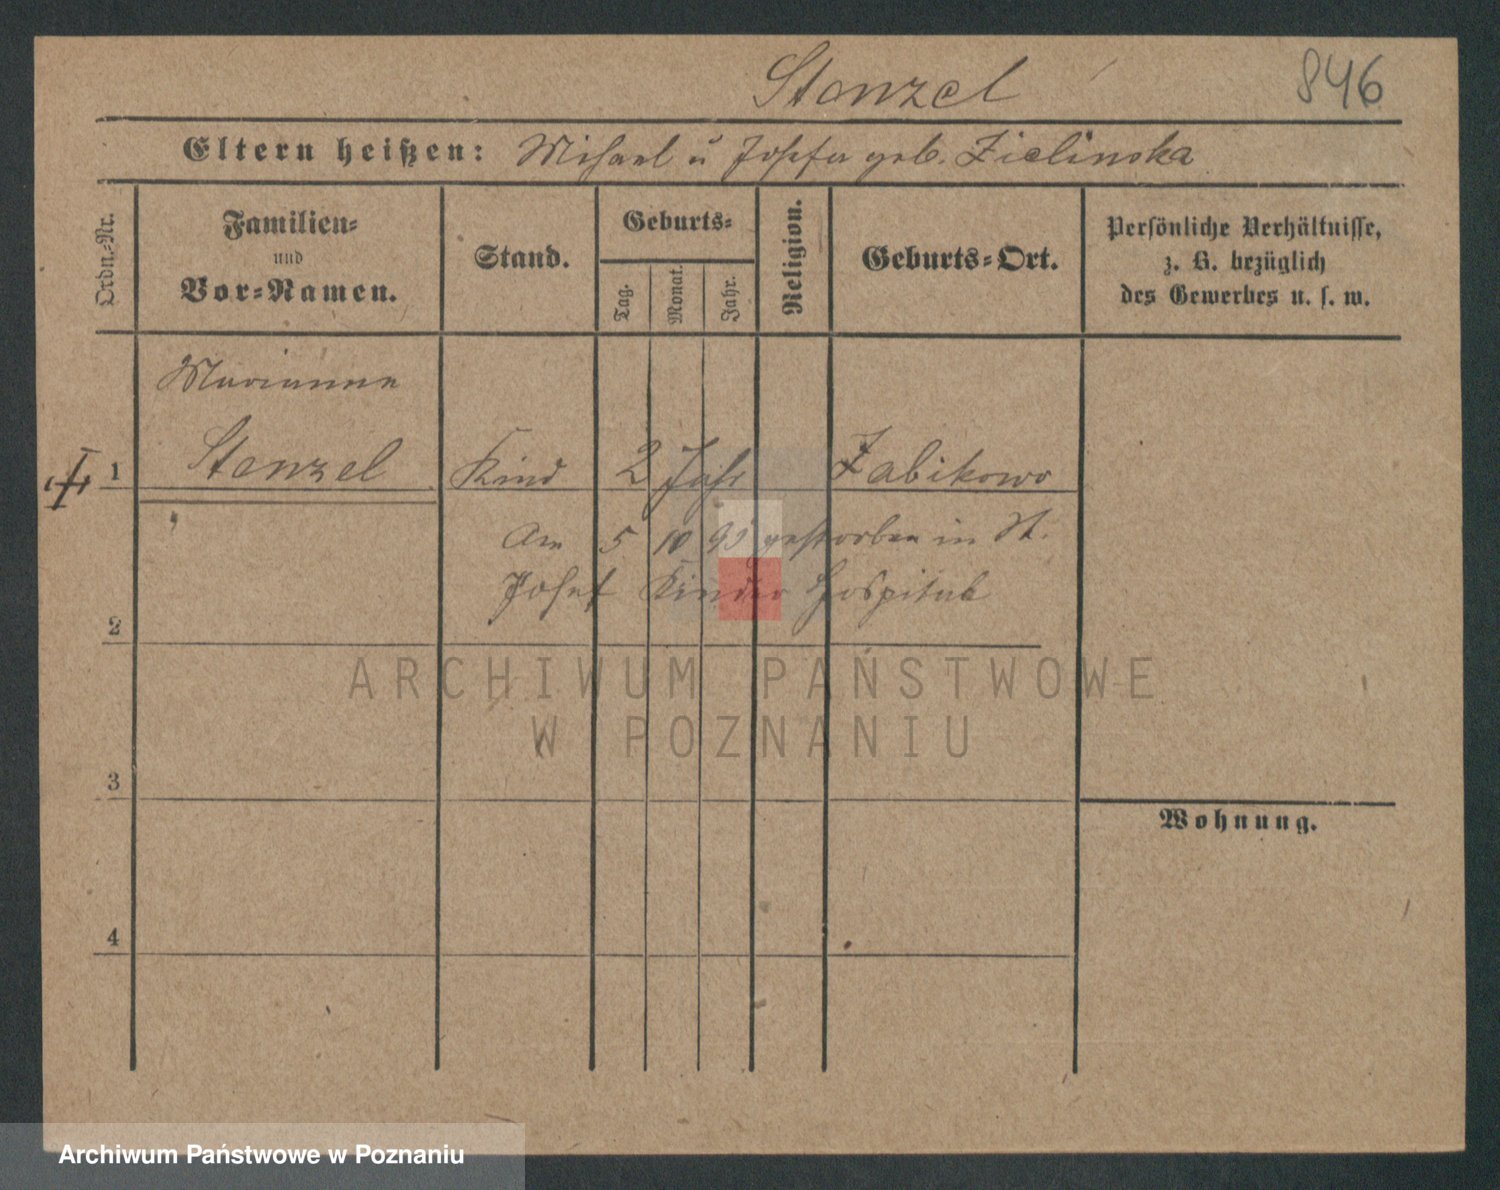 Stenzel 846
Eltern heißen: Michael u Josefa geb. Zielinska
Ordn.=Nr.
Familien=
und
Vor=Namen.
Stand.
Geburts=
Tag. Monat. Jahr.
Religion.
Geburts=Ort.
Persönliche Verhältnisse,
z. B. bezüglich
des Gewerbes u. s. w.
Marianna
1 Stenzel Kind 2 Jahr Zabikowo
Am 5 10 gestorben in St.
Josef Kinder Hospital
2
ARCHIWUM PAŃSTWOWE
W POZNANIU
3
Wohnung.
4
Archiwum Państwowe w Poznaniu